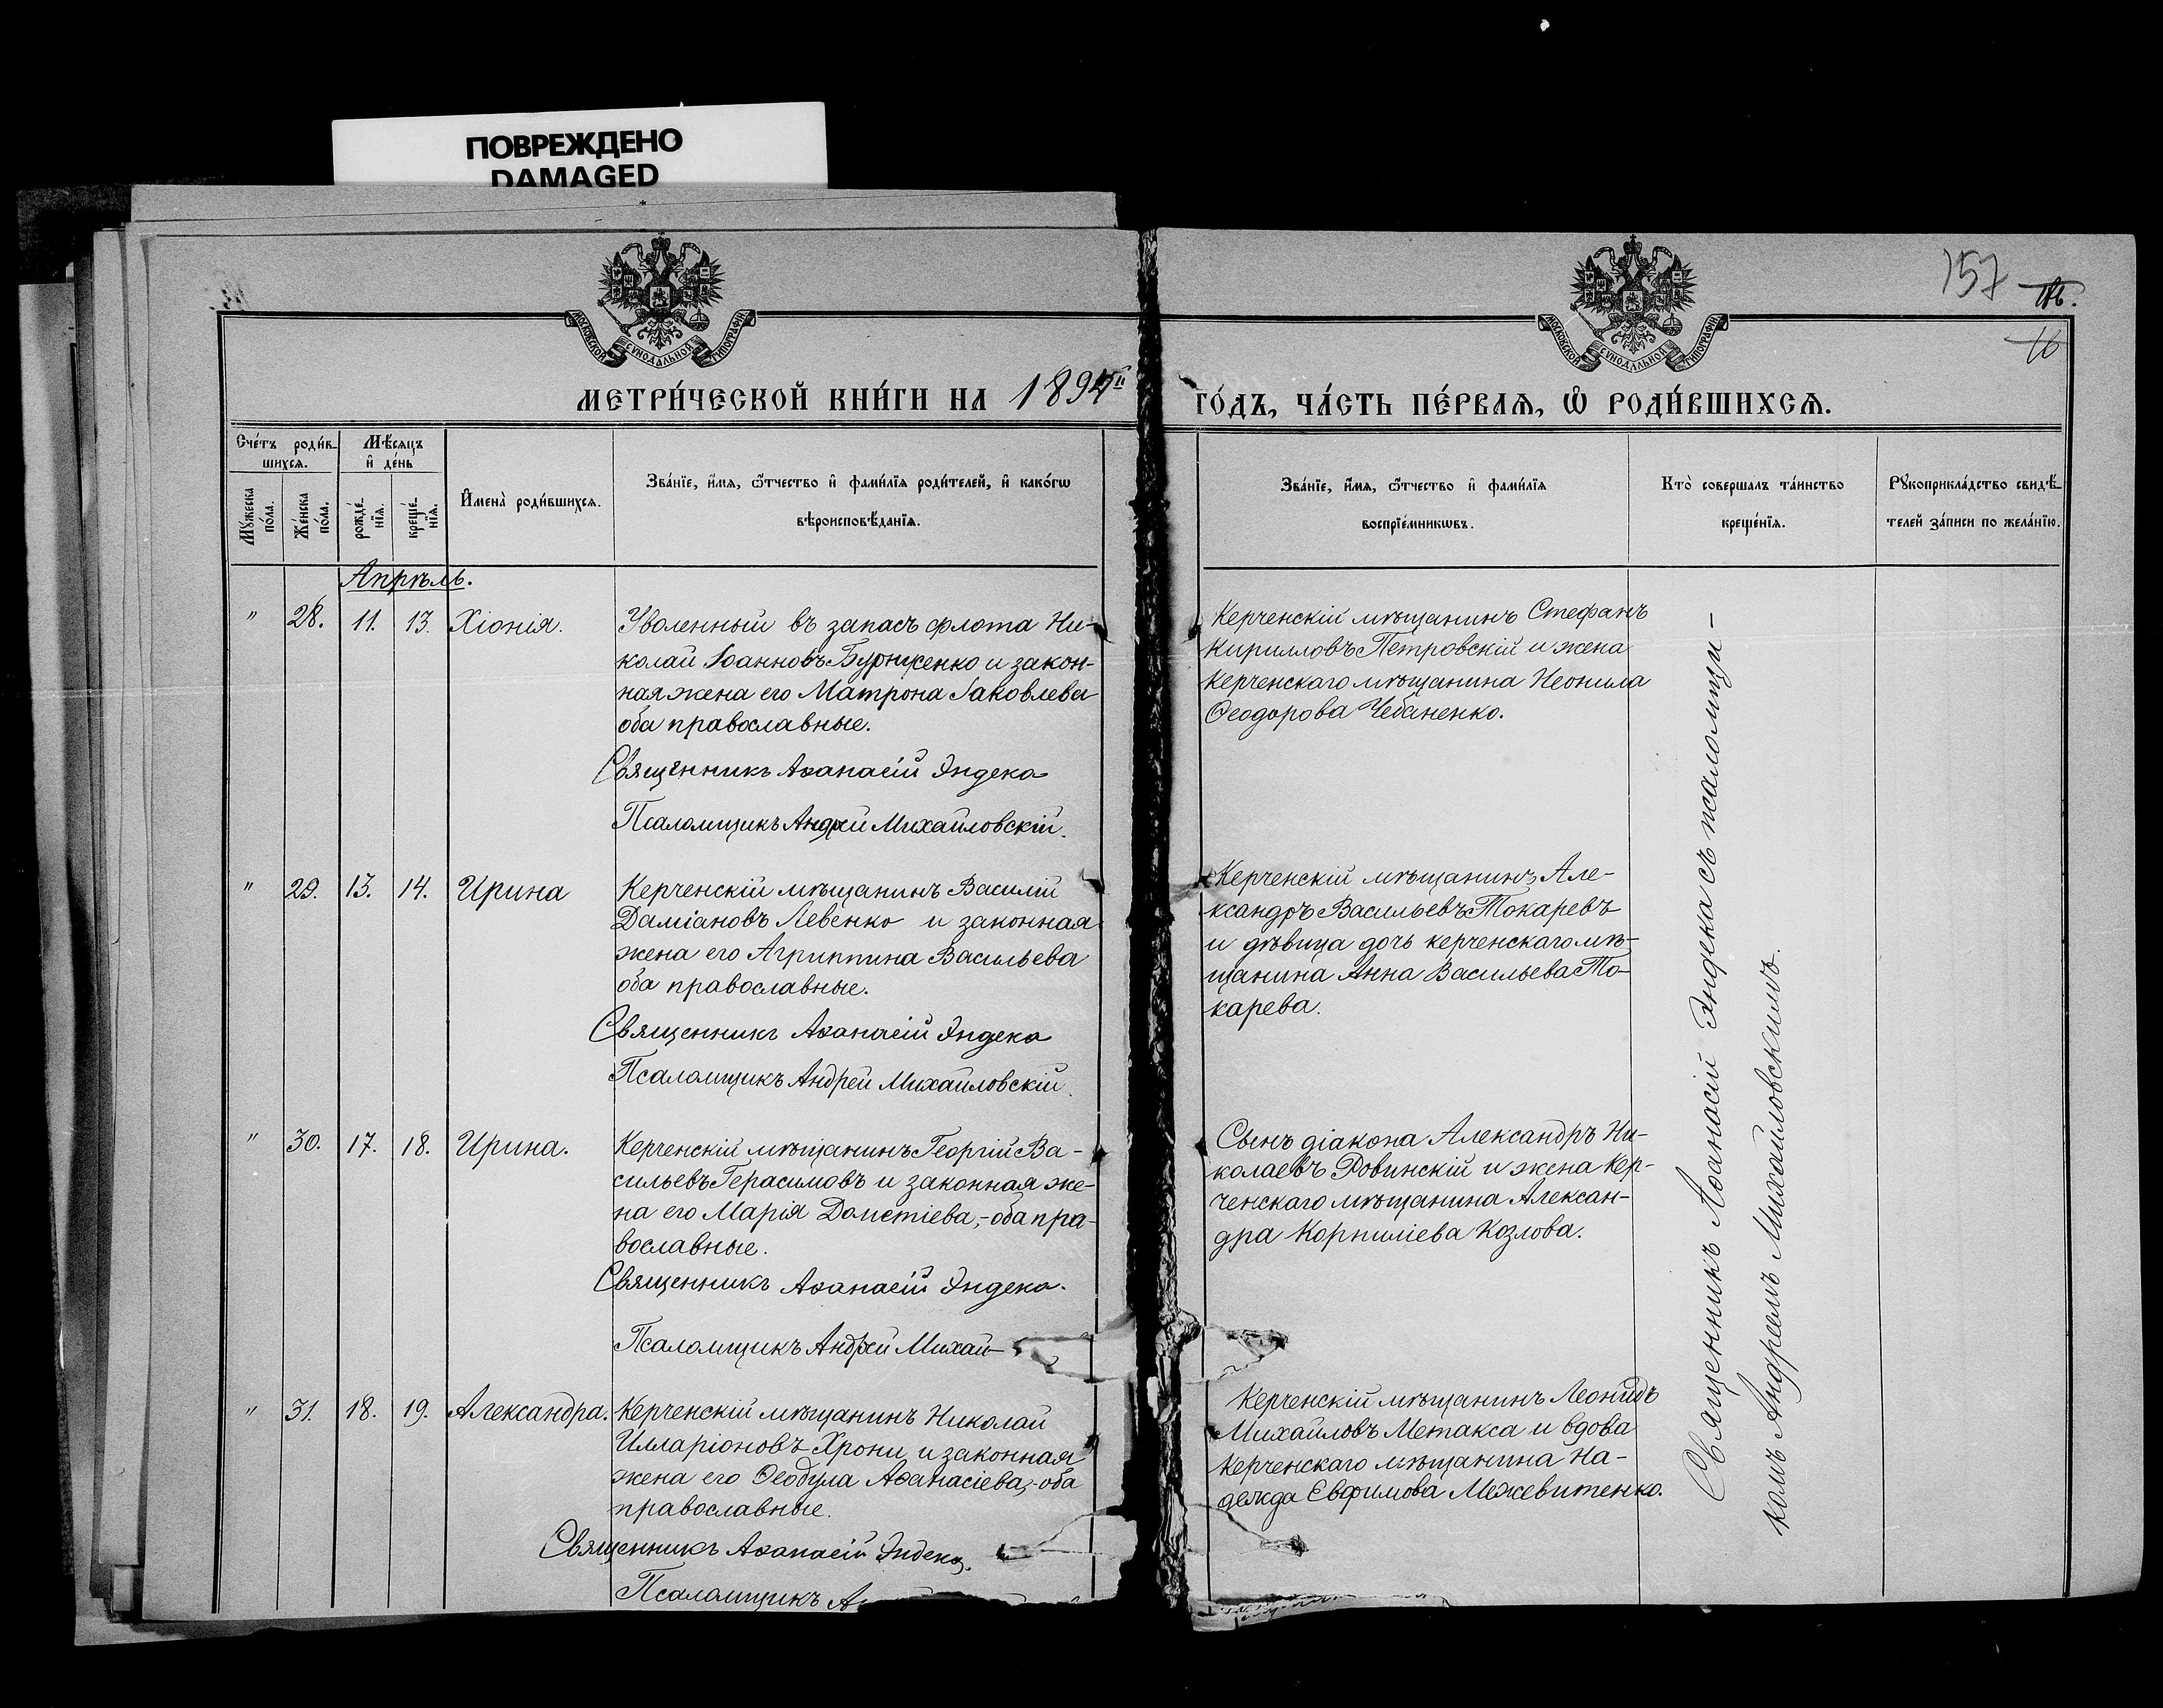 ПОВРЕЖДЕНО
DAMAGED
МОСКОВСКОЙ СѴНОДАЛЬНОЙ ТИПОГРАФІИ
МОСКОВСКОЙ СѴНОДАЛЬНОЙ ТИПОГРАФІИ
157
16
МЕТРИ́ЧЕСКОЙ КНИ́ГИ НА 189
ГО́ДЪ, ЧА́СТЬ ПЕ́РВАѦ, Ѡ РОДИ́ВШИХСѦ.
Сче́тъ роди́в-
шихсѧ.
Мѣ́сѧцъ
и҆ де́нь
Мꙋ́жеска по́ла.
Же́нска по́ла.
рожде́-нїѧ.
креще́-нїѧ.
И҆мена̀ роди́вшихсѧ.
Зва́нїе, и҆́мѧ, ѻ҆́тчество и҆ фами́лїѧ роди́телей, и҆ како́гѡ
вѣроисповѣ́данїѧ.
Зва́нїе, и҆́мѧ, ѻ҆́тчество и҆ фами́лїѧ
воспрїе́мникѡвъ.
Кто̀ соверша́лъ та́инство
креще́нїѧ.
Рꙋкоприкла́дство свидѣ́-
телей за́писи по жела́нїю.
Апрѣль.
" 28. 11. 13. Хіонія.
Уволенный въ запасъ флота Ни-
колай Іоанновъ Бурнженко и закон-
ная жена его Матрона Іаковлева
оба православные.
Священникъ Аѳанасій Эндека
Псаломщикъ Андрей Михайловскій.
Керченскій мѣщанинъ Стефанъ
Кирилловъ Петровскій и жена
Керченскаго мѣщанина Неонила
Ѳеодорова Чебаненко.
" 29. 13. 14. Ирина
Керченскій мѣщанинъ Василій
Даміановъ Левенко и законная
жена его Агриппина Васильева
оба православные.
Священникъ Аѳанасій Эндека
Псаломщикъ Андрей Михайловскій.
Керченскій мѣщанинъ Але-
ксандръ Васильевъ Токаревъ
и дѣвица дочь керченскаго мѣ-
щанина Анна Васильева То-
карева.
" 30. 17. 18. Ирина.
Керченскій мѣщанинъ Георгій Ва-
сильевъ Герасимовъ и законная же-
на его Марія Дометіева,- оба пра-
вославные.
Священникъ Аѳанасій Эндека.
Псаломщикъ Андрей Михай-
Сынъ діакона Александръ Ни-
колаевъ Ровинскій и жена Кер-
ченскаго мѣщанина Алексан-
дра Корниліева Козлова.
" 31. 18. 19. Александра.
Керченскій мѣщанинъ Николай
Илларіоновъ Хрони и законная
жена его Ѳеодула Аѳанасіева,- оба
православные.
Священникъ Аѳанасій Эндека.
Псаломщикъ
Керченскій мѣщанинъ Леонидъ
Михайловъ Метакса и вдова
Керченскаго мѣщанина На-
дежда Евфимова Межевитенко.
Священникъ Аѳанасій Эндека съ псаломщи-
комъ Андреемъ Михайловскимъ.